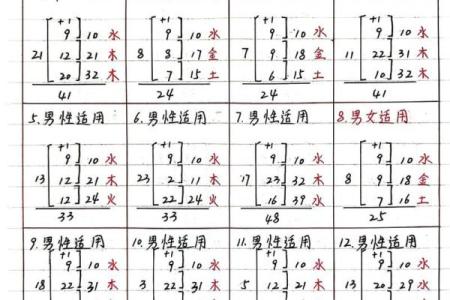 +1 +1 +1 +1
9 10 水 9 10 水 9 10 水 9 10 水
21 12 21 木 8 8 17 金 7 9 18 金 11 22 31 木
20 32 木 7 15 土 6 15 土 10 32 木
41 24 24 41
5.男性适用 6.男性适用 7.男性适用 8.男女适用
+1 +1 +1 +1
9 10 水 9 10 水 9 10 水 9 10 水
13 12 21 木 23 2 11 木 17 23 32 木 8 9 18 金
12 24 火 22 24 火 16 39 水 7 16 土
33 33 48 25
9.男性适用 10.男性适用 11.男性适用 12.男性适用
+1 +1 +1 +1
9 10 水 9 10 水 9 10 水 9 10 水
18 22 31 木 3 22 31 木 5 12 21 木 13 20 29 水